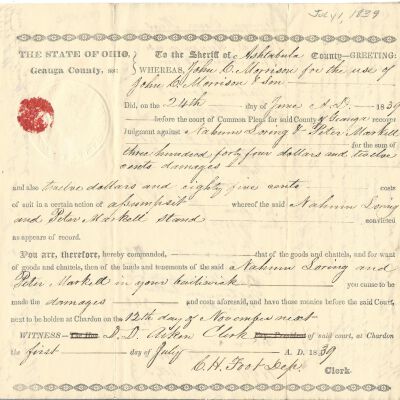 July 1, 1839
THE STATE OF OHIO, To the Sheriff of Ashtabula County—GREETING:
Geauga County, ss: WHEREAS, John C. Morrison for the use of
John C Morrison & Son
Did, on the 24th day of June A.D. 1839
before the court of Common Pleas for said County of Geauga recover
Judgment against Nahum Loring & Peter Markell
for the sum of
three hundred forty four dollars and twelve
cents damages
and also twelve dollars and eighty five cents costs
of suit in a certain action of assumpsit whereof the said Nahum Loring
and Peter Markell stand convicted
as appears of record.
You are, therefore, hereby commanded, that of the goods and chattels, and for want
of goods and chattels, then of the lands and tenements of the said Nahum Loring and
Peter Markell in your bailiwick you cause to be
made the damages and costs aforesaid, and have those monies before the said Court,
next to be holden at Chardon on the 12th day of November next
WITNESS—The Hon. D. D. Aiken Clerk President of said court, at Chardon
the first day of July A. D. 1839
C. H. Foot Dep. Clerk.